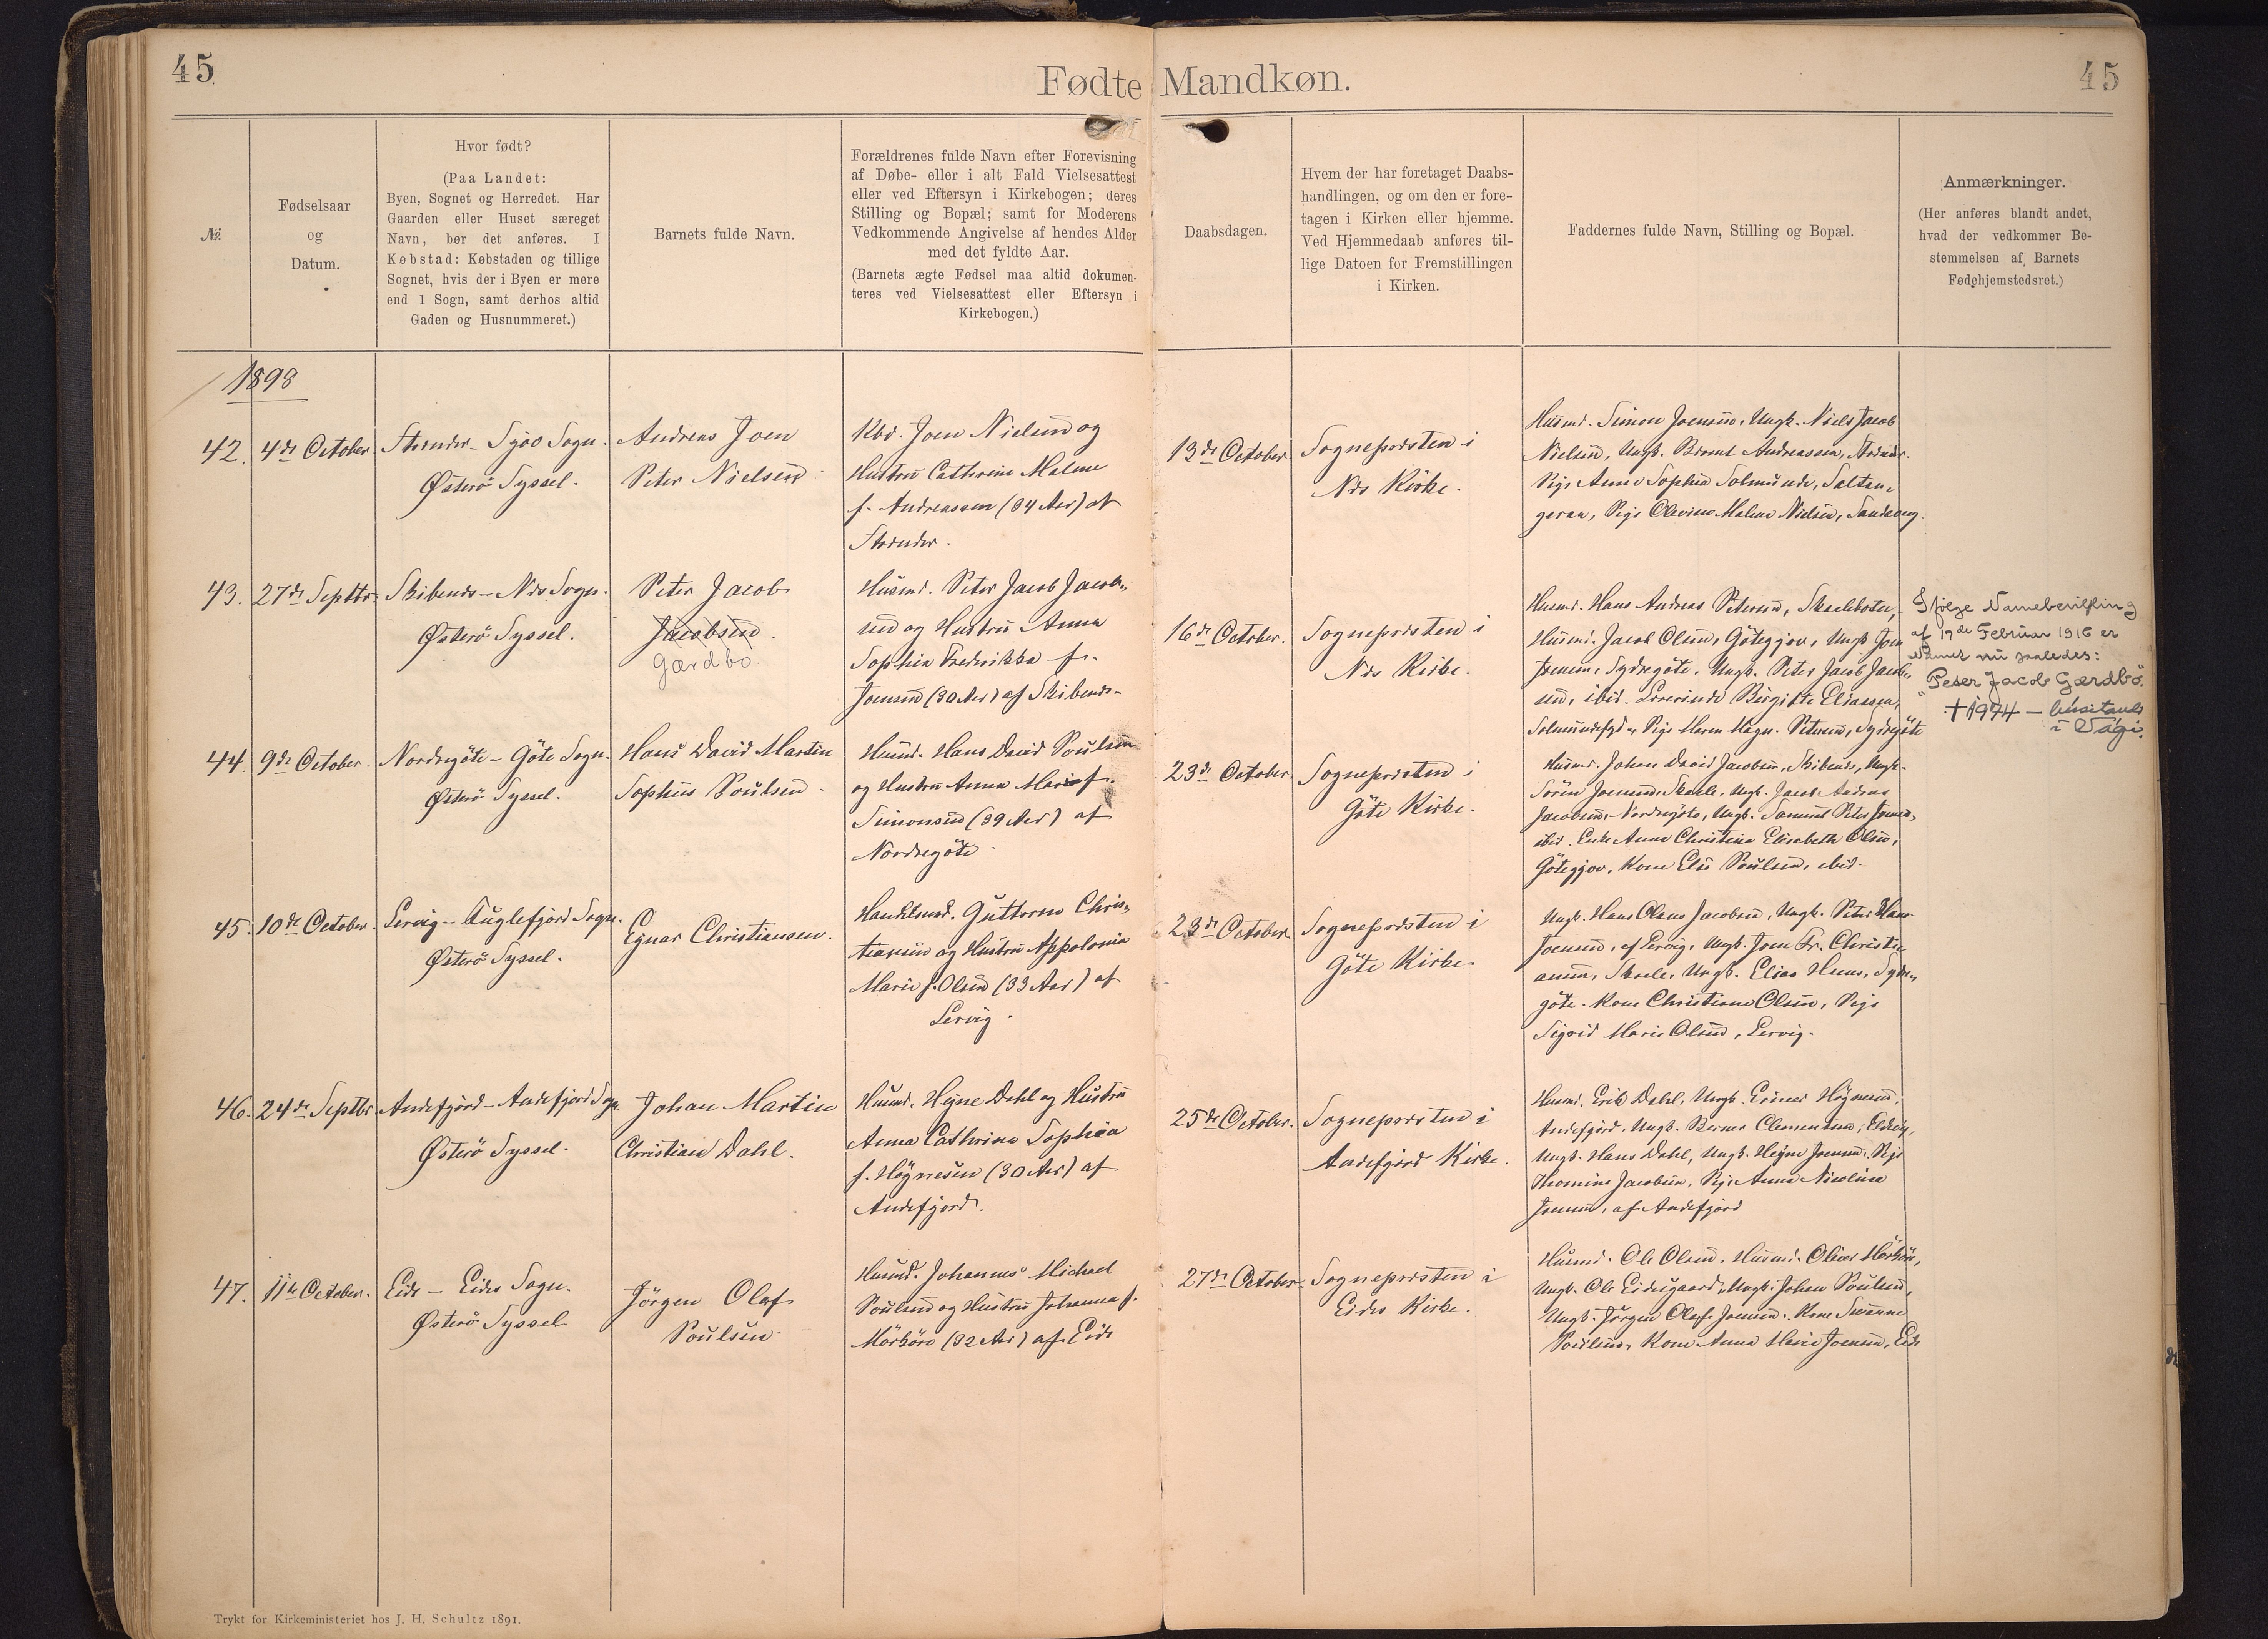 45
Fødte Mandkøn.
45
№.
Fødselsaar
og
Datum.
Hvor født?
(Paa Landet:
Byen, Sognet og Herredet. Har
Gaarden eller Huset særeget
Navn, bør det anføres. I
Købstad: Købstaden og tillige
Sognet, hvis der i Byen er mere
end 1 Sogn, samt derhos altid
Gaden og Husnummeret.)
Barnets fulde Navn.
Forældrenes fulde Navn efter Forevisning
af Døbe- eller i alt Fald Vielsesattest
eller ved Eftersyn i Kirkebogen; deres
Stilling og Bopæl; samt for Moderens
Vedkommende Angivelse af hendes Alder
med det fyldte Aar.
(Barnets ægte Fødsel maa altid dokumen-
teres ved Vielsesattest eller Eftersyn i
Kirkebogen.)
Daabsdagen.
Hvem der har foretaget Daabs-
handlingen, og om den er fore-
tagen i Kirken eller hjemme.
Ved Hjemmedaab anføres til-
lige Datoen for Fremstillingen
i Kirken.
Faddernes fulde Navn, Stilling og Bopæl.
Anmærkninger.
(Her anføres blandt andet,
hvad der vedkommer Be-
stemmelsen af Barnets
Fødehjemstedsret.)
1898
42.
4de October.
Strænder - Sjoo Sogn.
Østerö Syssel.
Andreas Joen
Peter Nielsen
Kbd. Joen Nielsen og
Hustru Cathrine Malene
f. Andreassen (34 Aar) af
Strænder.
13de October.
Sognepræsten i
Næs Kirke.
Husmd. Simon Joensen, Ungk. Niels Jacob
Nielsen, Ungk. Andreassen, Strænder.
Pige Anna Sophia Solmunde, Saltan-
garaa, Pige Olevine Malene Nielsen,
43.
27de Septbr.
Skibenæs - Næs Sogn.
Østerö Syssel.
Peter Jacob
Jacobsen.
Gærdbo.
Husmd. Peter Jacob Jacob-
sen og Hustru Anna
Sophia Frederikka f.
Joensen (30 Aar) af Skibenæs.
16de October.
Sognepræsten i
Næs Kirke.
Husmd. Hans Andreas Petersen,
Husmd. Jacob Olsen, Götegjov, Ungk. Joen
Joensen, Sydregöte, Ungk. Peter Jacob Jacob-
sen, ibid. Lærerinde Birgitte Eliassen,
Pige Maren Magn. Petersen, Sydregöte
Ifølge Navnebevilling
af 19de Februar 1916 er
Navnet nu saaledes:
"Peter Jacob Gærdbo".
† 1974 - búsitandi
í Vági.
44.
9de October.
Nordregöte - Göte Sogn.
Østerö Syssel.
Hans David Martin
Sophus Poulsen.
Husmd. Hans David Poulsen
og Hustru Anna Marie f.
Simonsen (39 Aar) af
Nordregöte.
23de October.
Sognepræsten i
Göte Kirke.
Husmd. Johan David Jacobsen, Skibenæs, Ungk.
Sörin Joensen, Skaale, Ungk. Jacob Andreas
Jacobsen, Nordregöte, Ungk. Samuel Peter Joensen,
ibid. Enke Anne Christina Elisabeth Olsen,
Götegjov, Kone Else Poulsen, ibid.
45.
10de October.
Lervig - Fuglefjord Sogn.
Østerö Syssel.
Egnar Christiansen.
Handelsmd. Guttorm Chris-
tiansen og Hustru Appolonia
Marie f. Olsen (33 Aar) af
Lervig.
23de October.
Sognepræsten i
Göte Kirke.
Ungk. Hans Olaus Jacobsen, Ungk. Peter Hans
Joensen, af Lervig, Ungk. Joen Fr. Christi-
ansen, Skaale, Ungk. Elias Hans, Sydre-
göte. Kone Christiane Olsen, Pige
Sigrid Marie Olsen, Lervig.
46.
24de Septbr.
Andefjord - Andefjord Sogn
Østerö Syssel.
Johan Martin
Christian Dahl.
Husmd. Hejne Dahl og Hustru
Anna Cathrine Sophia
f. Högnesen (30 Aar) af
Andefjord.
25de October.
Sognepræsten i
Andefjord Kirke.
Husmd. Erik Dahl, Ungk. Högnesen,
Andefjord, Ungk. Clementsen, Eldevig,
Ungk. Hans Dahl, Ungk. Hejne Joensen, Pige
Thomine Jacobsen, Pige Anna Nicolina
Joensen, af Andefjord
47.
11te October.
Eide - Eides Sogn.
Østerö Syssel
Jörgen Olaf
Poulsen.
Husmd. Johannes Michael
Poulsen og Hustru Johanna f.
Mörköre (32 Aar) af Eide
27de October.
Sognepræsten i
Eides Kirke.
Husmd. Ole Olsen, Husmd. Oliver Mörköre,
Ungk. Ole Eidesgaard, Ungk. Johan Poulsen,
Ungk. Jörgen Olaf Joensen. Kone Susanne
Poulsen, Kone Anna Marie Joensen, Eide
Trykt for Kirkeministeriet hos J. H. Schultz 1891.